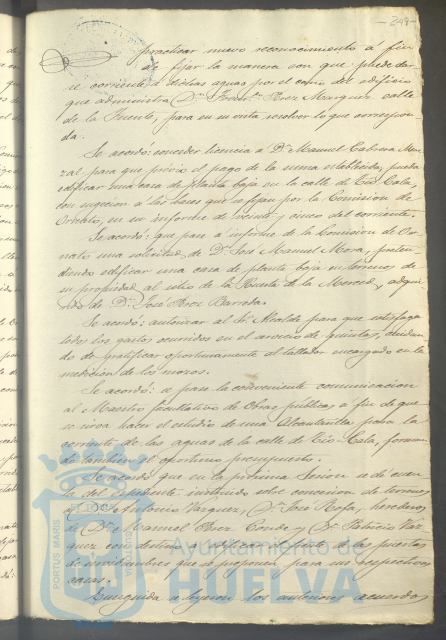 - 249 -
practicar nuevo reconocimiento á fin
de fijar la manera con que puede dar-
se corriente á dichas aguas por el caño del edificio
que administra Dn. Perez Marquez calle
de la Fuente, para en su vista resolver lo que correspon-
da.
Se acordó: conceder licencia á Dn. Manuel Cabrera Mo-
ral para que previo el pago de la suma establecida, pueda
edificar una casa de planta baja en la calle de Tio-Cala,
con sugecion á las bases que se fijan por la Comision de
Ornato, en su informe de veinte y cinco del corriente.
Se acordó: que pase á informe de la Comision de Or-
nato una solicitud de Dn. José Manuel Mora, preten-
diendo edificar una casa de planta baja en terreno de
su propiedad al sitio de la Huerta de la Merced, adqui-
rido de Dn. José Perez Barroda.
Se acordó: autorizar al Sr. Alcalde para que satisfaga
todos los gastos ocurridos en el servicio de quintas, cuidan-
do de gratificar oportunamente al tallador encargado en la
medicion de los mozos.
Se acordó: se pase la conveniente comunicacion
al Maestro facultativo de Obras públicas á fin de que
se sirva hacer el estudio de una Alcantarilla para la
corriente de las aguas de la calle de Tio-Cala, forman-
do tambien el oportuno presupuesto.
Se acordó que en la próxima Sesion se dé cuen-
ta del espediente instruido sobre concesion de terrenos
á Dn. Antonio Vazquez, Dn. José Rofa, herederos
de Dn. Manuel Perez Conde y Dn. Patricio Vaz-
quez con destino á edificar al frente de las puertas
de servidumbres que se proponen para sus respectivas
casas.
Enseguida se leyeron los anteriores acuerdos
PORTUS MARIS
Ayuntamiento de
HUELVA